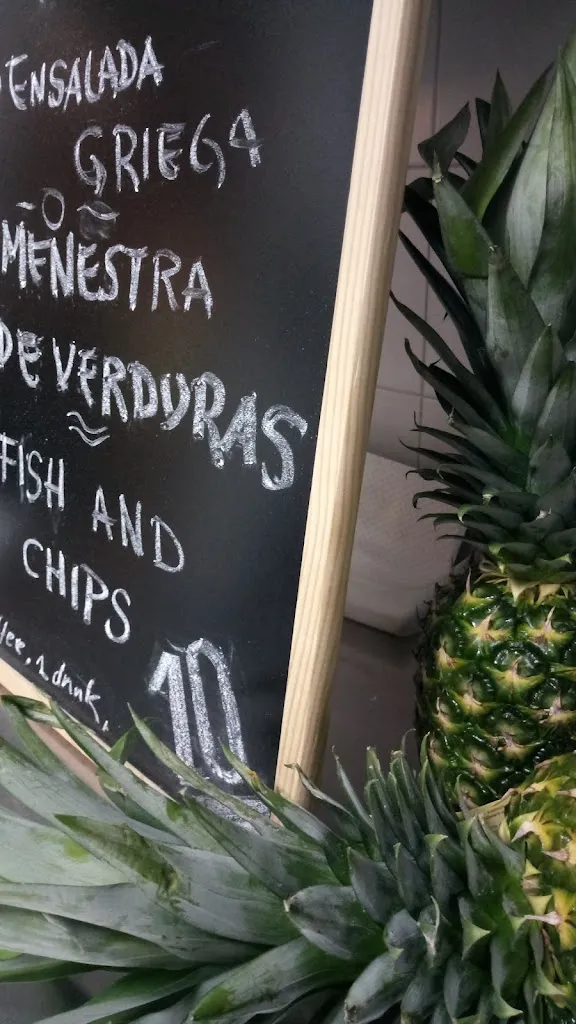 ENSALADA
GRIEGA
-O-
MENESTRA
DE VERDURAS
FISH AND
CHIPS
1 drink,
10